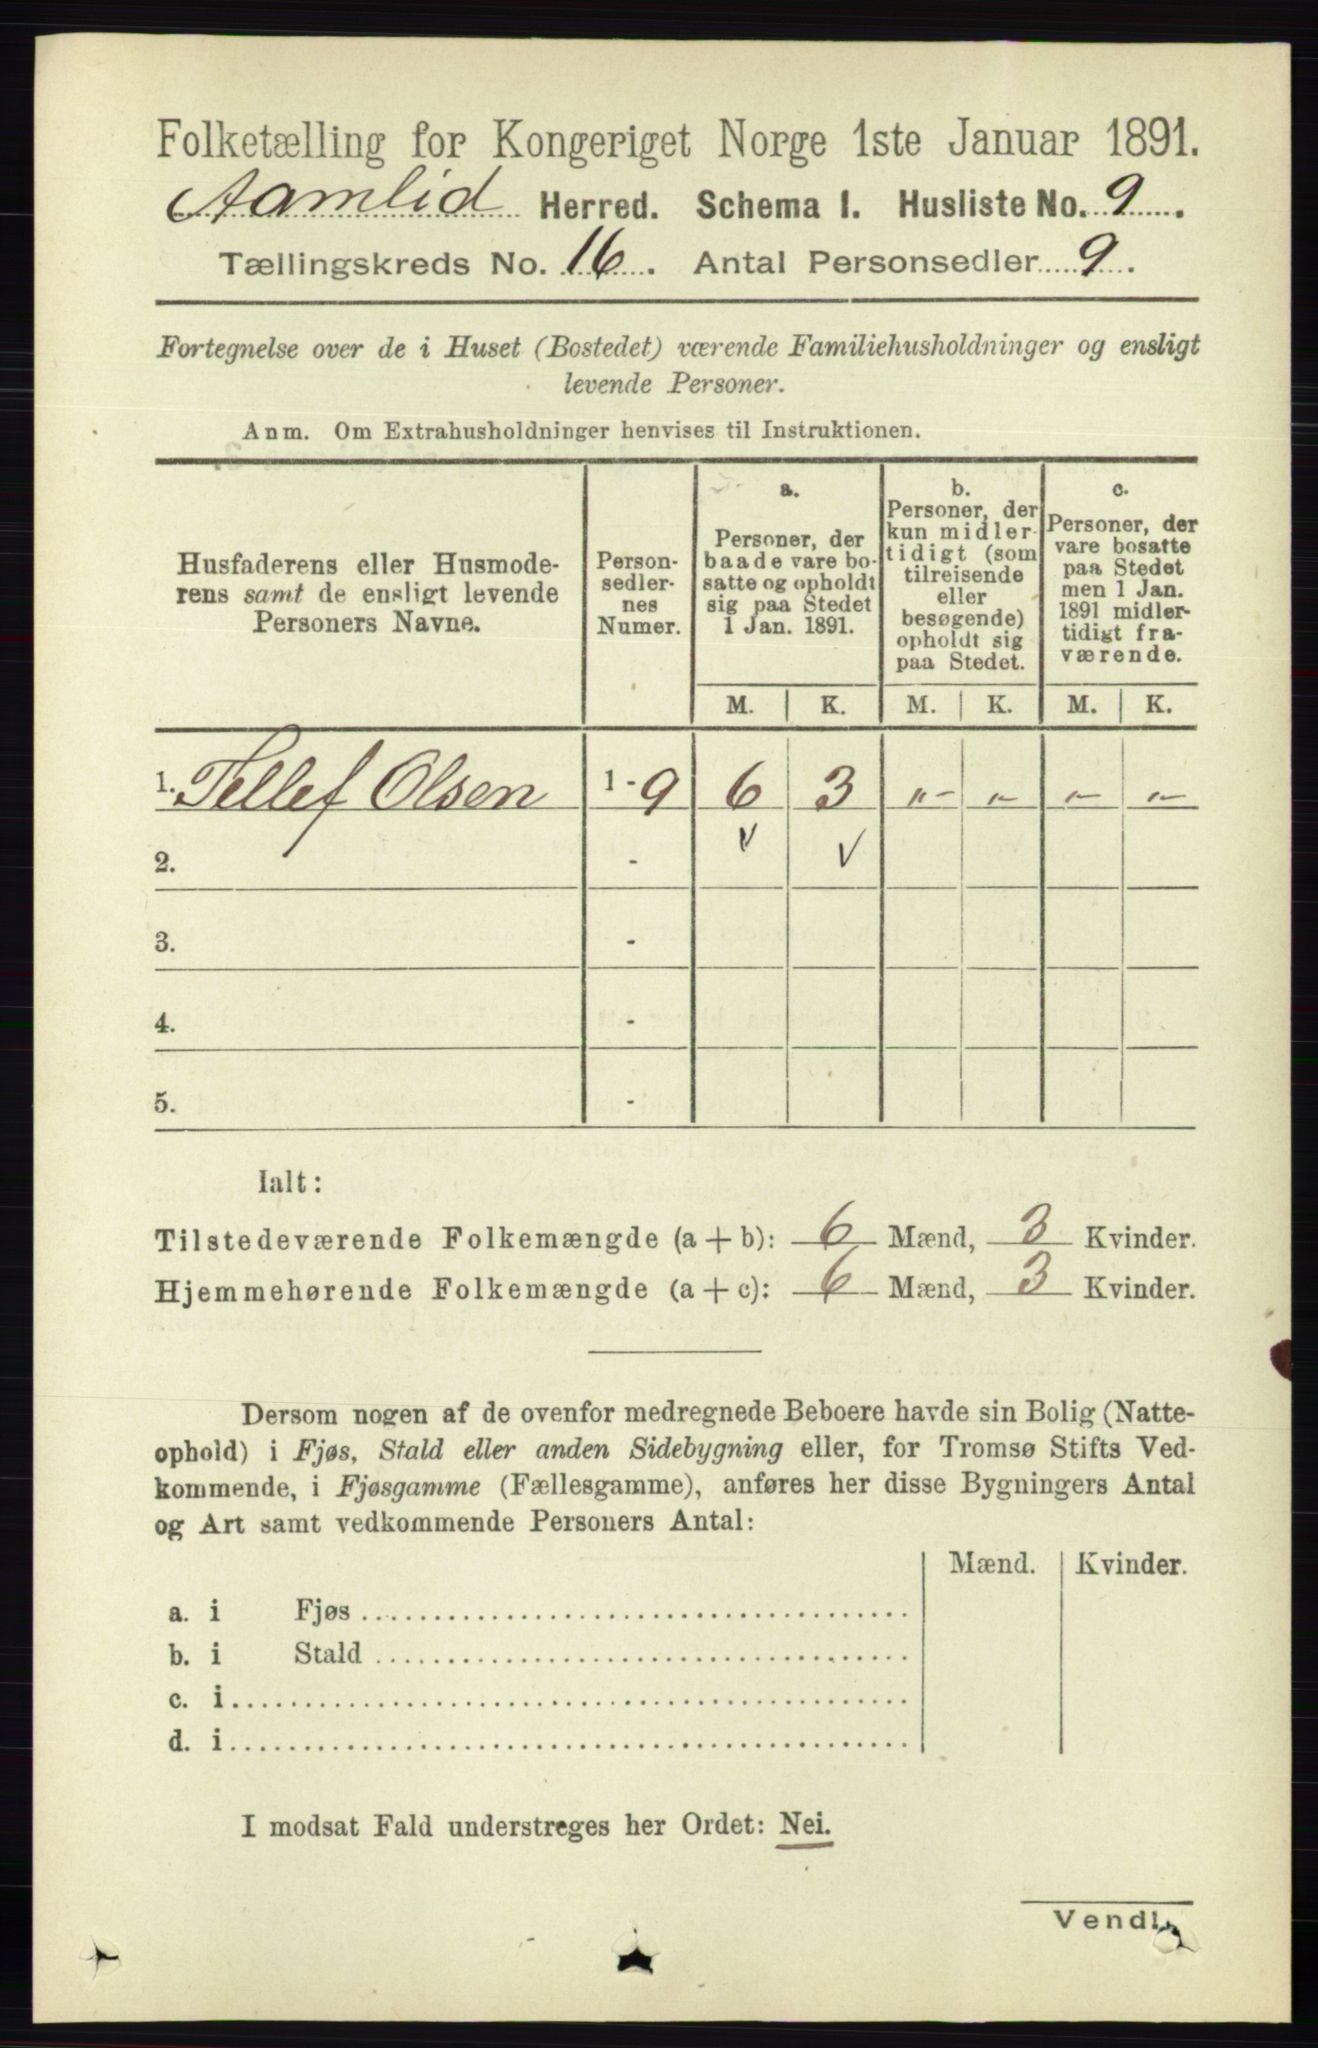 Folketælling for Kongeriget Norge 1ste Januar 1891.
Aamlid Herred. Schema I. Husliste No. 9.
Tællingskreds No. 16. Antal Personsedler 9.
Fortegnelse over de i Huset (Bostedet) værende Familiehusholdninger og ensligt
levende Personer.
Anm. Om Extrahusholdninger henvises til Instruktionen.
Husfaderens eller Husmode-
rens samt de ensligt levende
Personers Navne.
Person-
sedler-
nes
Numer.
a.
Personer, der
baade vare bo-
satte og opholdt
sig paa Stedet
1 Jan. 1891.
b.
Personer, der
kun midler-
tidigt (som
tilreisende
eller
besøgende)
opholdt sig
paa Stedet.
c.
Personer, der
vare bosatte
paa Stedet
men 1 Jan.
1891 midler-
tidigt fra-
værende.
M. K. M. K. M. K.
1. Tellef Olsen 1 - 9 6 3 „- „- „- „-
2. - v v
3. -
4. -
5. -
Ialt:
Tilstedeværende Folkemængde (a + b): 6 Mænd, 3 Kvinder.
Hjemmehørende Folkemængde (a + c): 6 Mænd, 3 Kvinder.
Dersom nogen af de ovenfor medregnede Beboere havde sin Bolig (Natte-
ophold) i Fjøs, Stald eller anden Sidebygning eller, for Tromsø Stifts Ved-
kommende, i Fjøsgamme (Fællesgamme), anføres her disse Bygningers Antal
og Art samt vedkommende Personers Antal:
Mænd. Kvinder.
a. i Fjøs
b. i Stald
c. i
d. i
I modsat Fald understreges her Ordet: Nei.
Vend!